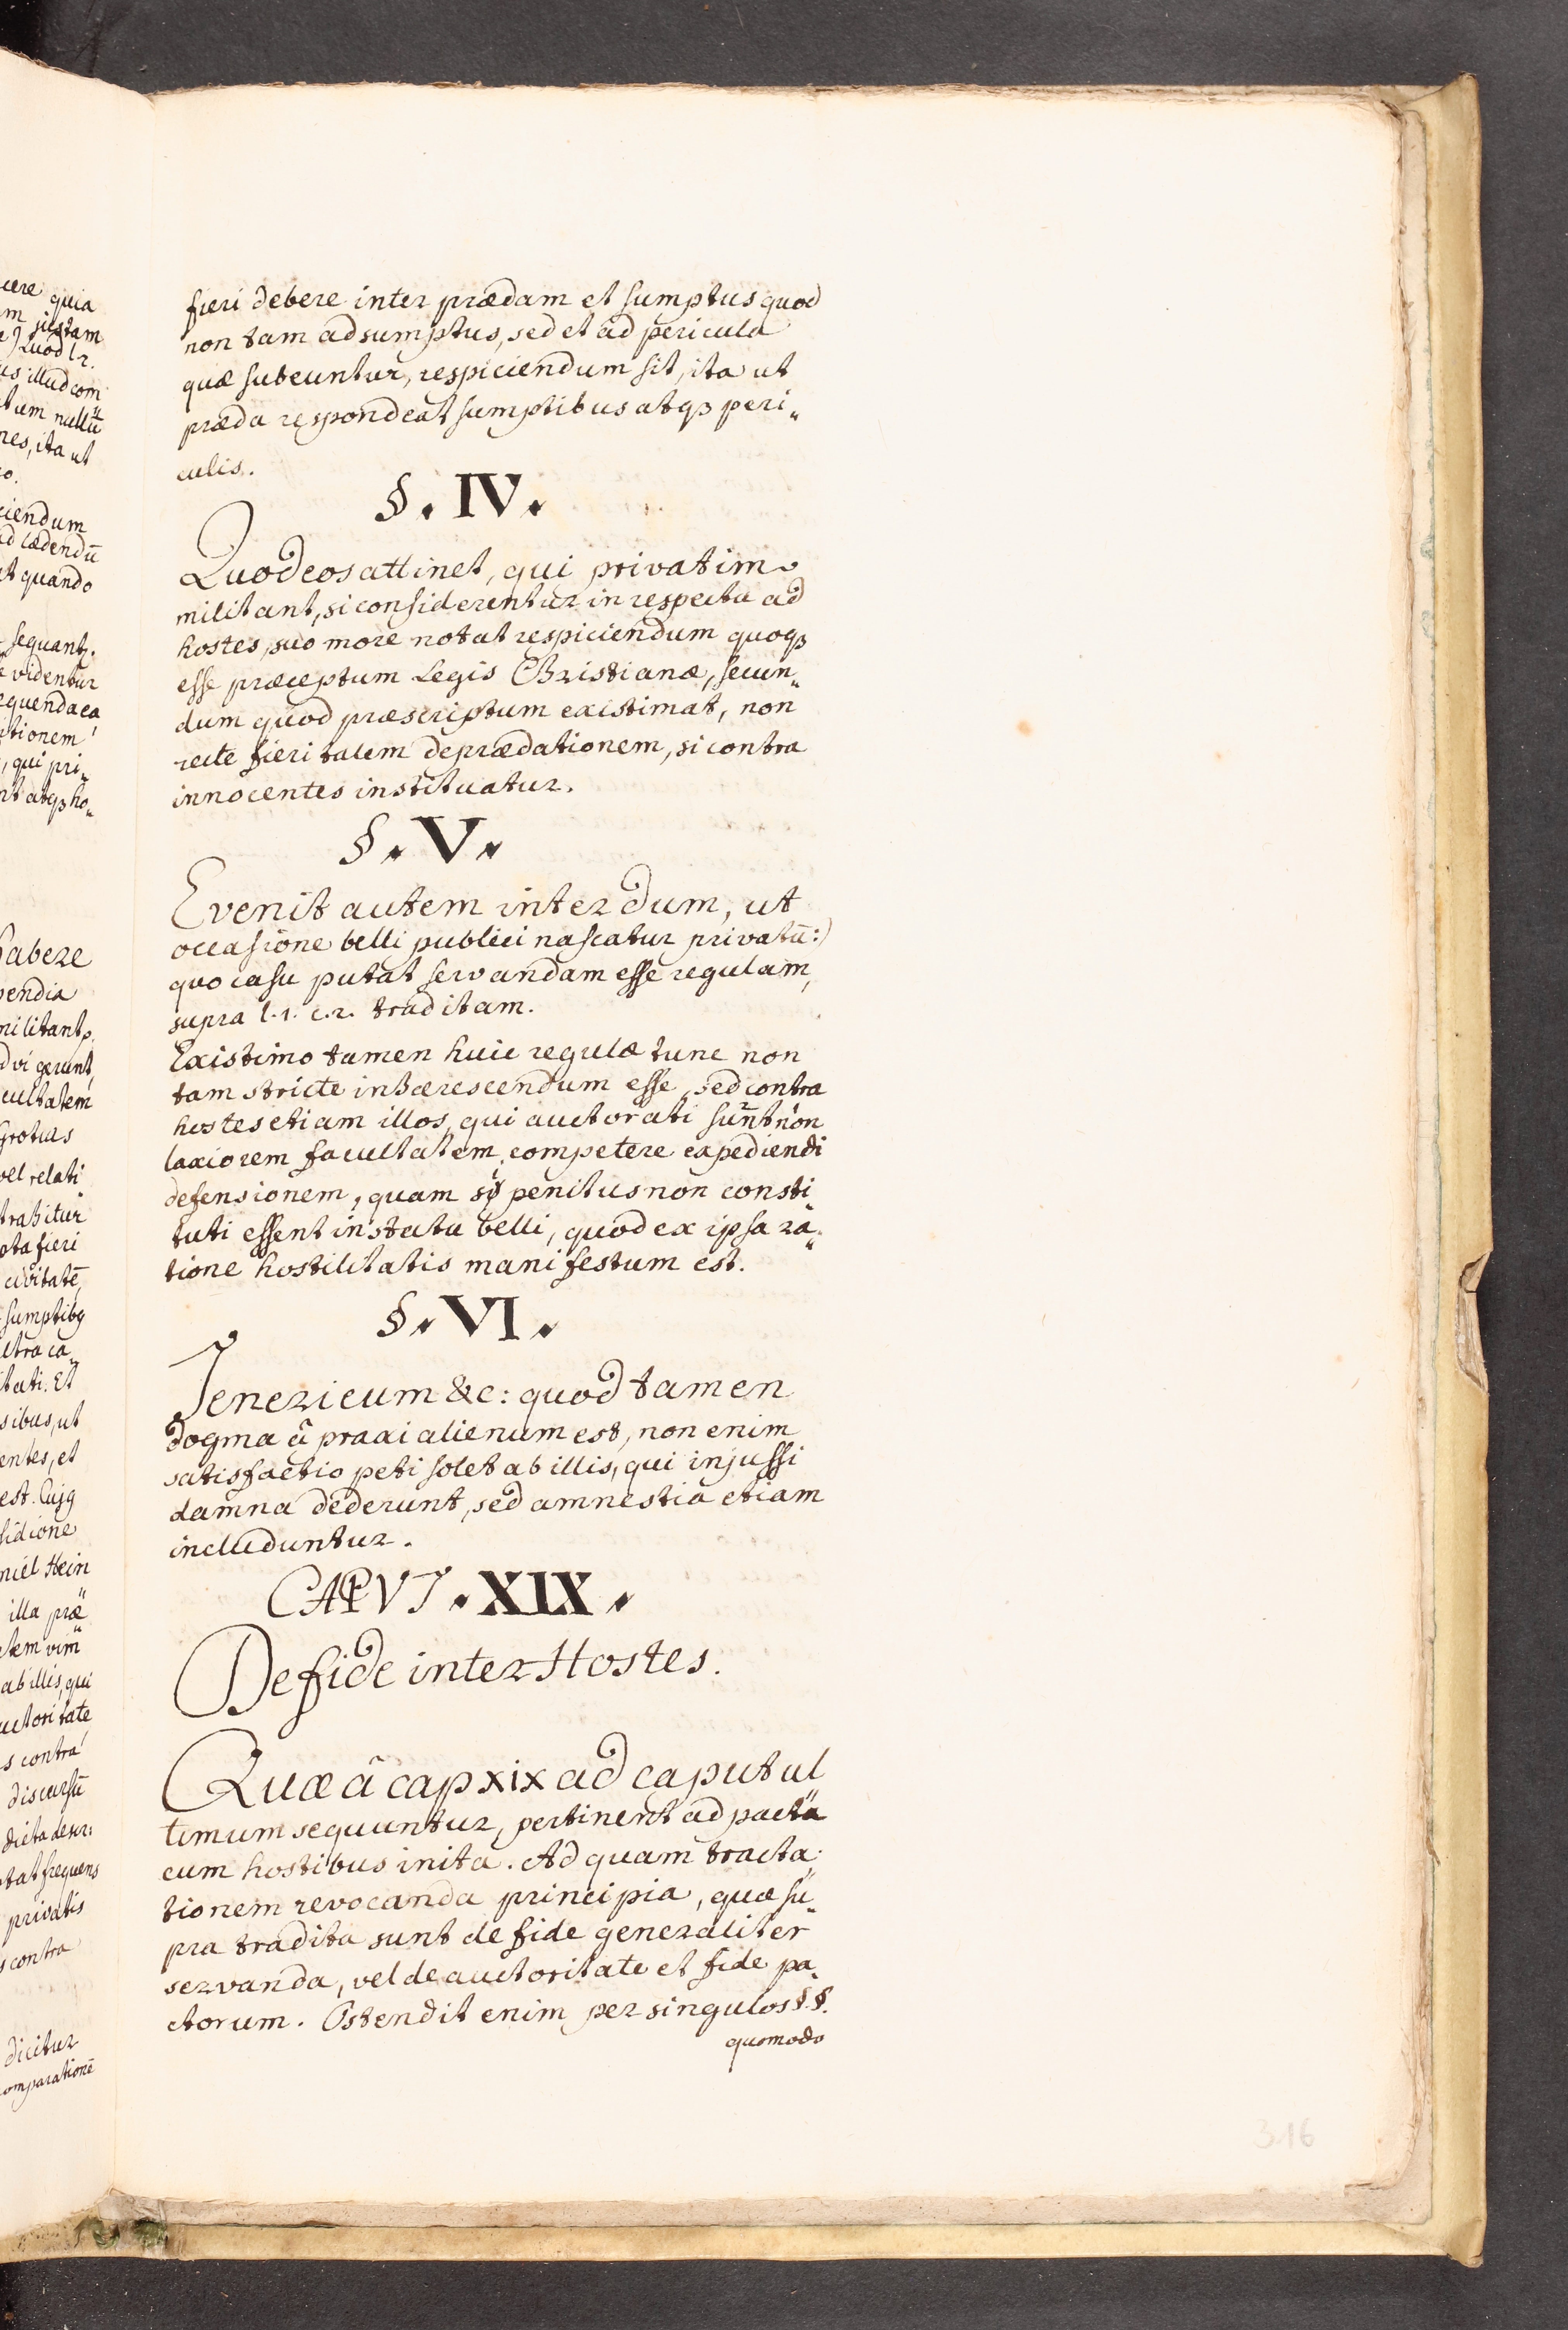 fieri debere inter prædam et sumptus quod
non tam ad sumptus, sed et ad pericula
quæ subeuntur, respiciendum sit, ita ut
præda respondeat sumptibus atqꝫ peri„
culis.
§. IV.
Quod eos attinet, qui privatim
militant, si considerentur in respectu ad
hostes, suo more notat respiciendum quoqꝫ
esse præceptum Legis Christianæ, secun„
dum quod præscriptum existimat, non
recte fieri talem deprædationem, si contra
innocentes instituatur.
§. V.
Evenit autem interdum, ut
occasione belli publici nascatur privatū:)
quo casu putat servandam esse regulam,
supra l. 1. c. 2. traditam.
Existimo tamen huic regulæ tunc non
tam stricte inhærescendum esse, sed contra
hostes etiam illos, qui auctorati sunt non
laxiorem facultatem competere expediendi
defensionem, quam si penitus non consti„
tuti essent in statu belli, quod ex ipsa ra„
tione hostilitatis manifestum est.
§. VI.
Tenericum &c: quod tamen
dogma â praxi alienum est, non enim
satisfactio peti solet ab illis, qui injussi
damna dederunt, sed amnestiâ etiam
includuntur.
CAPVT. XIX.
De fide inter Hostes.
Quæ â cap XIX ad caput ul„
timum sequuntur, pertinent ad pacta
cum hostibus inita. Ad quam tracta„
tionem revocanda principia, quæ su„
pra tradita sunt de fide generaliter
servanda, vel de auctoritate et fide pa„
ctorum. Ostendit enim per singulos §.§.
quomodo
316